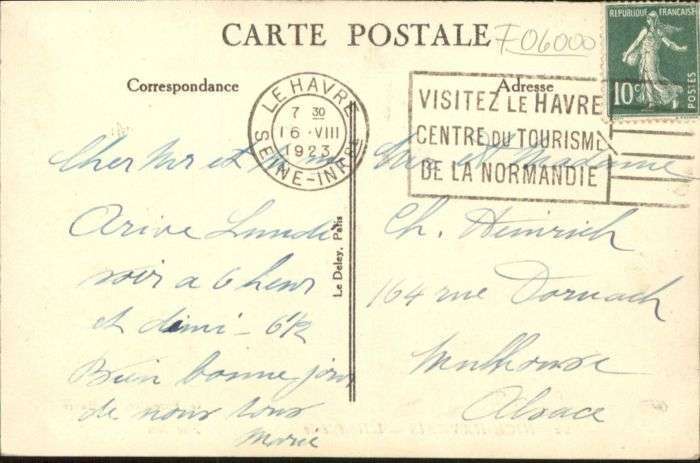 CARTE POSTALE
F06000
RÉPUBLIQUE FRANÇAISE
10c
POSTES
Correspondance
Adresse
LE HAVRE
7 30
16 · VIII
1923
SEINE-INFRE
VISITEZ LE HAVRE
CENTRE DU TOURISME
DE LA NORMANDIE
Cher Mr et
Arive Lundi
soir a 6 heur
et dimi - 6 1/2
Bien bonne jour
de nous tous
Marie
Le Deley, Paris
et Madame
Ch. Heinrich
164 rue Dornach
Mulhouse
Alsace